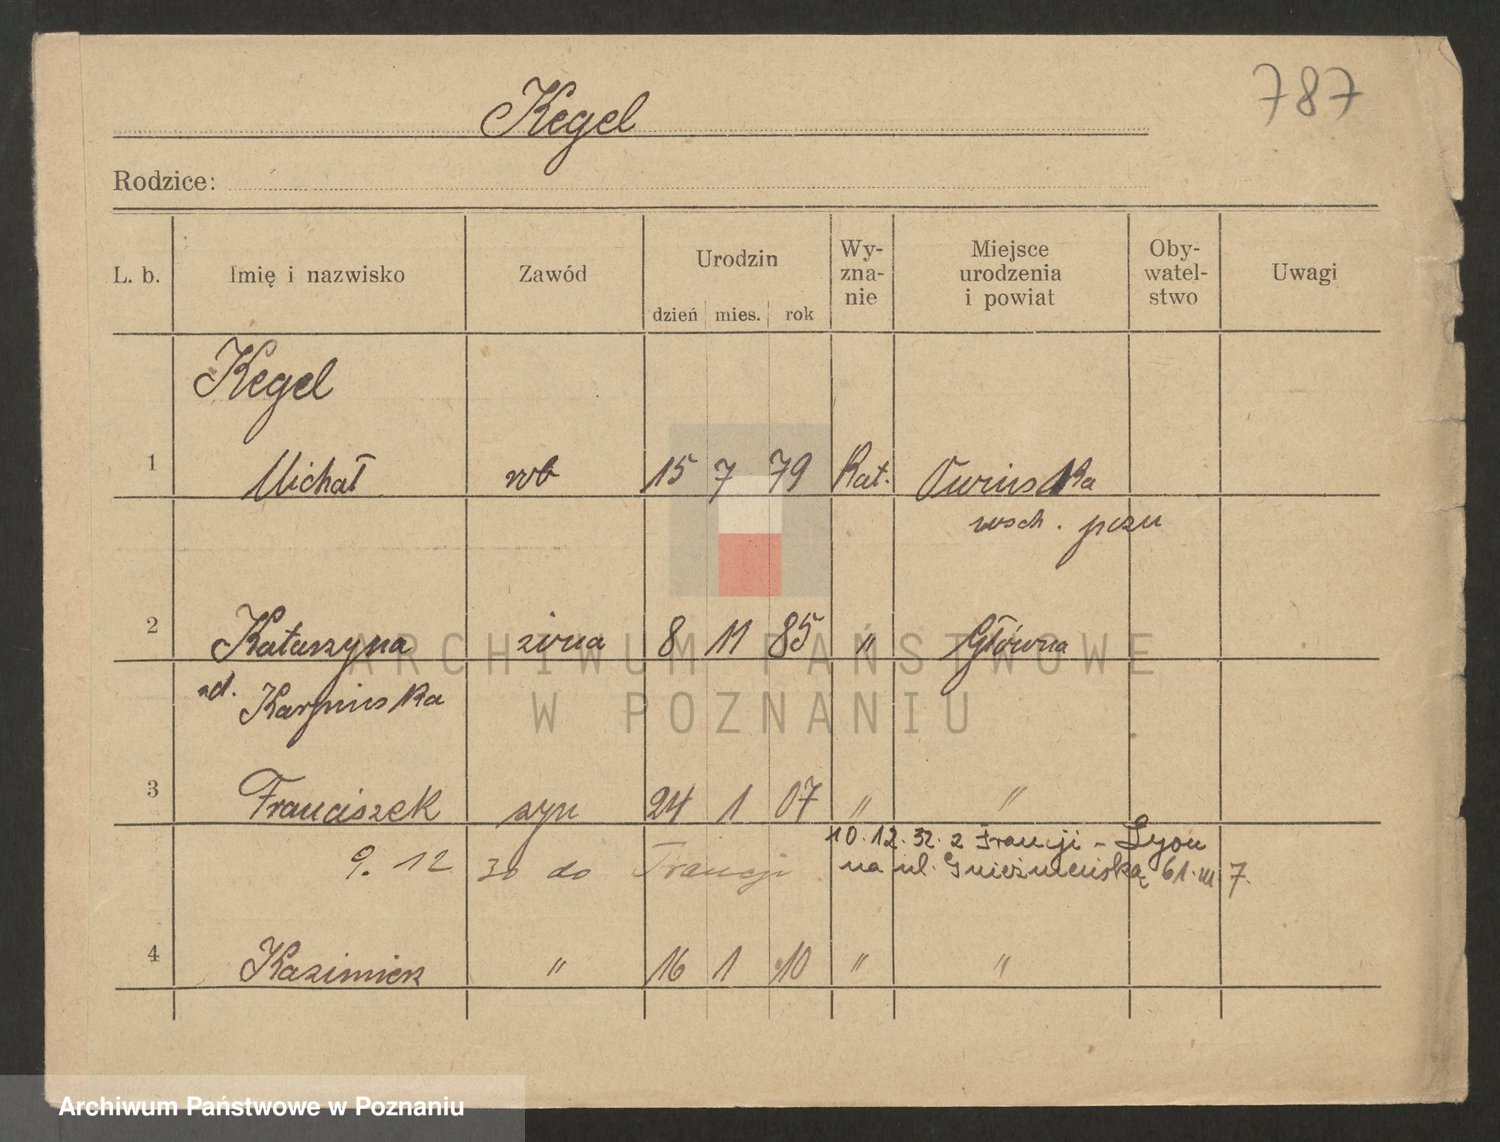 787
Kegel
Rodzice:
L. b. Imię i nazwisko Zawód Urodzin dzień mies. rok Wy- zna- nie Miejsce urodzenia i powiat Oby- watel- stwo Uwagi
Kegel
1 Michał rob 15 7 79 Kat. Owinska
wsch. pozn
2 Katarzyna żona 8 11 85 " Główna
zd. Karpinska
3 Franciszek syn 24 1 07 " "
10.12.32. z Francji - Lyon
9. 12 30 do Francji na ul. Gnieźnieńską 61. m 7.
4 Kazimierz " 16 1 10 " "
ARCHIWUM PAŃSTWOWE
W POZNANIU
Archiwum Państwowe w Poznaniu